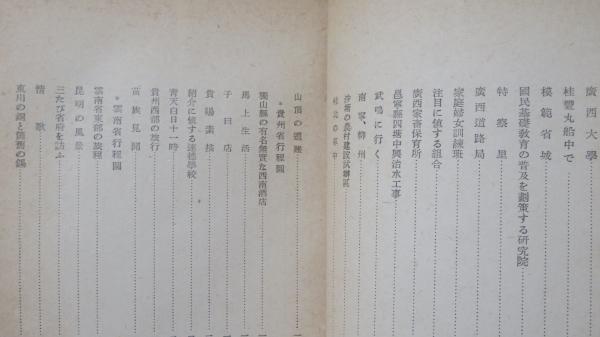 廣西大學
桂豐丸船中で
模範省城
國民基礎教育の普及を劃策する研究院
特察里
廣西道路局
家庭婦女訓練班
注目に値する組合
廣西家畜保育所
邕寧縣四塘中興治水工事
武鳴に行く
南寧、柳州
沙塘の農村建設試辦區
山頂の
*貴州省行程圖
獨山縣の有名無實な西南酒店
馬上生活
子曰店
貴陽素描
紹介に値する達德學校
靑天白日十一時
貴州西部の旅行
苗族見聞
*雲南省行程圖
雲南省東部の旅程
昆明の風景
三たび省府を訪ふ
情歌
東川の銅と箇舊の錫